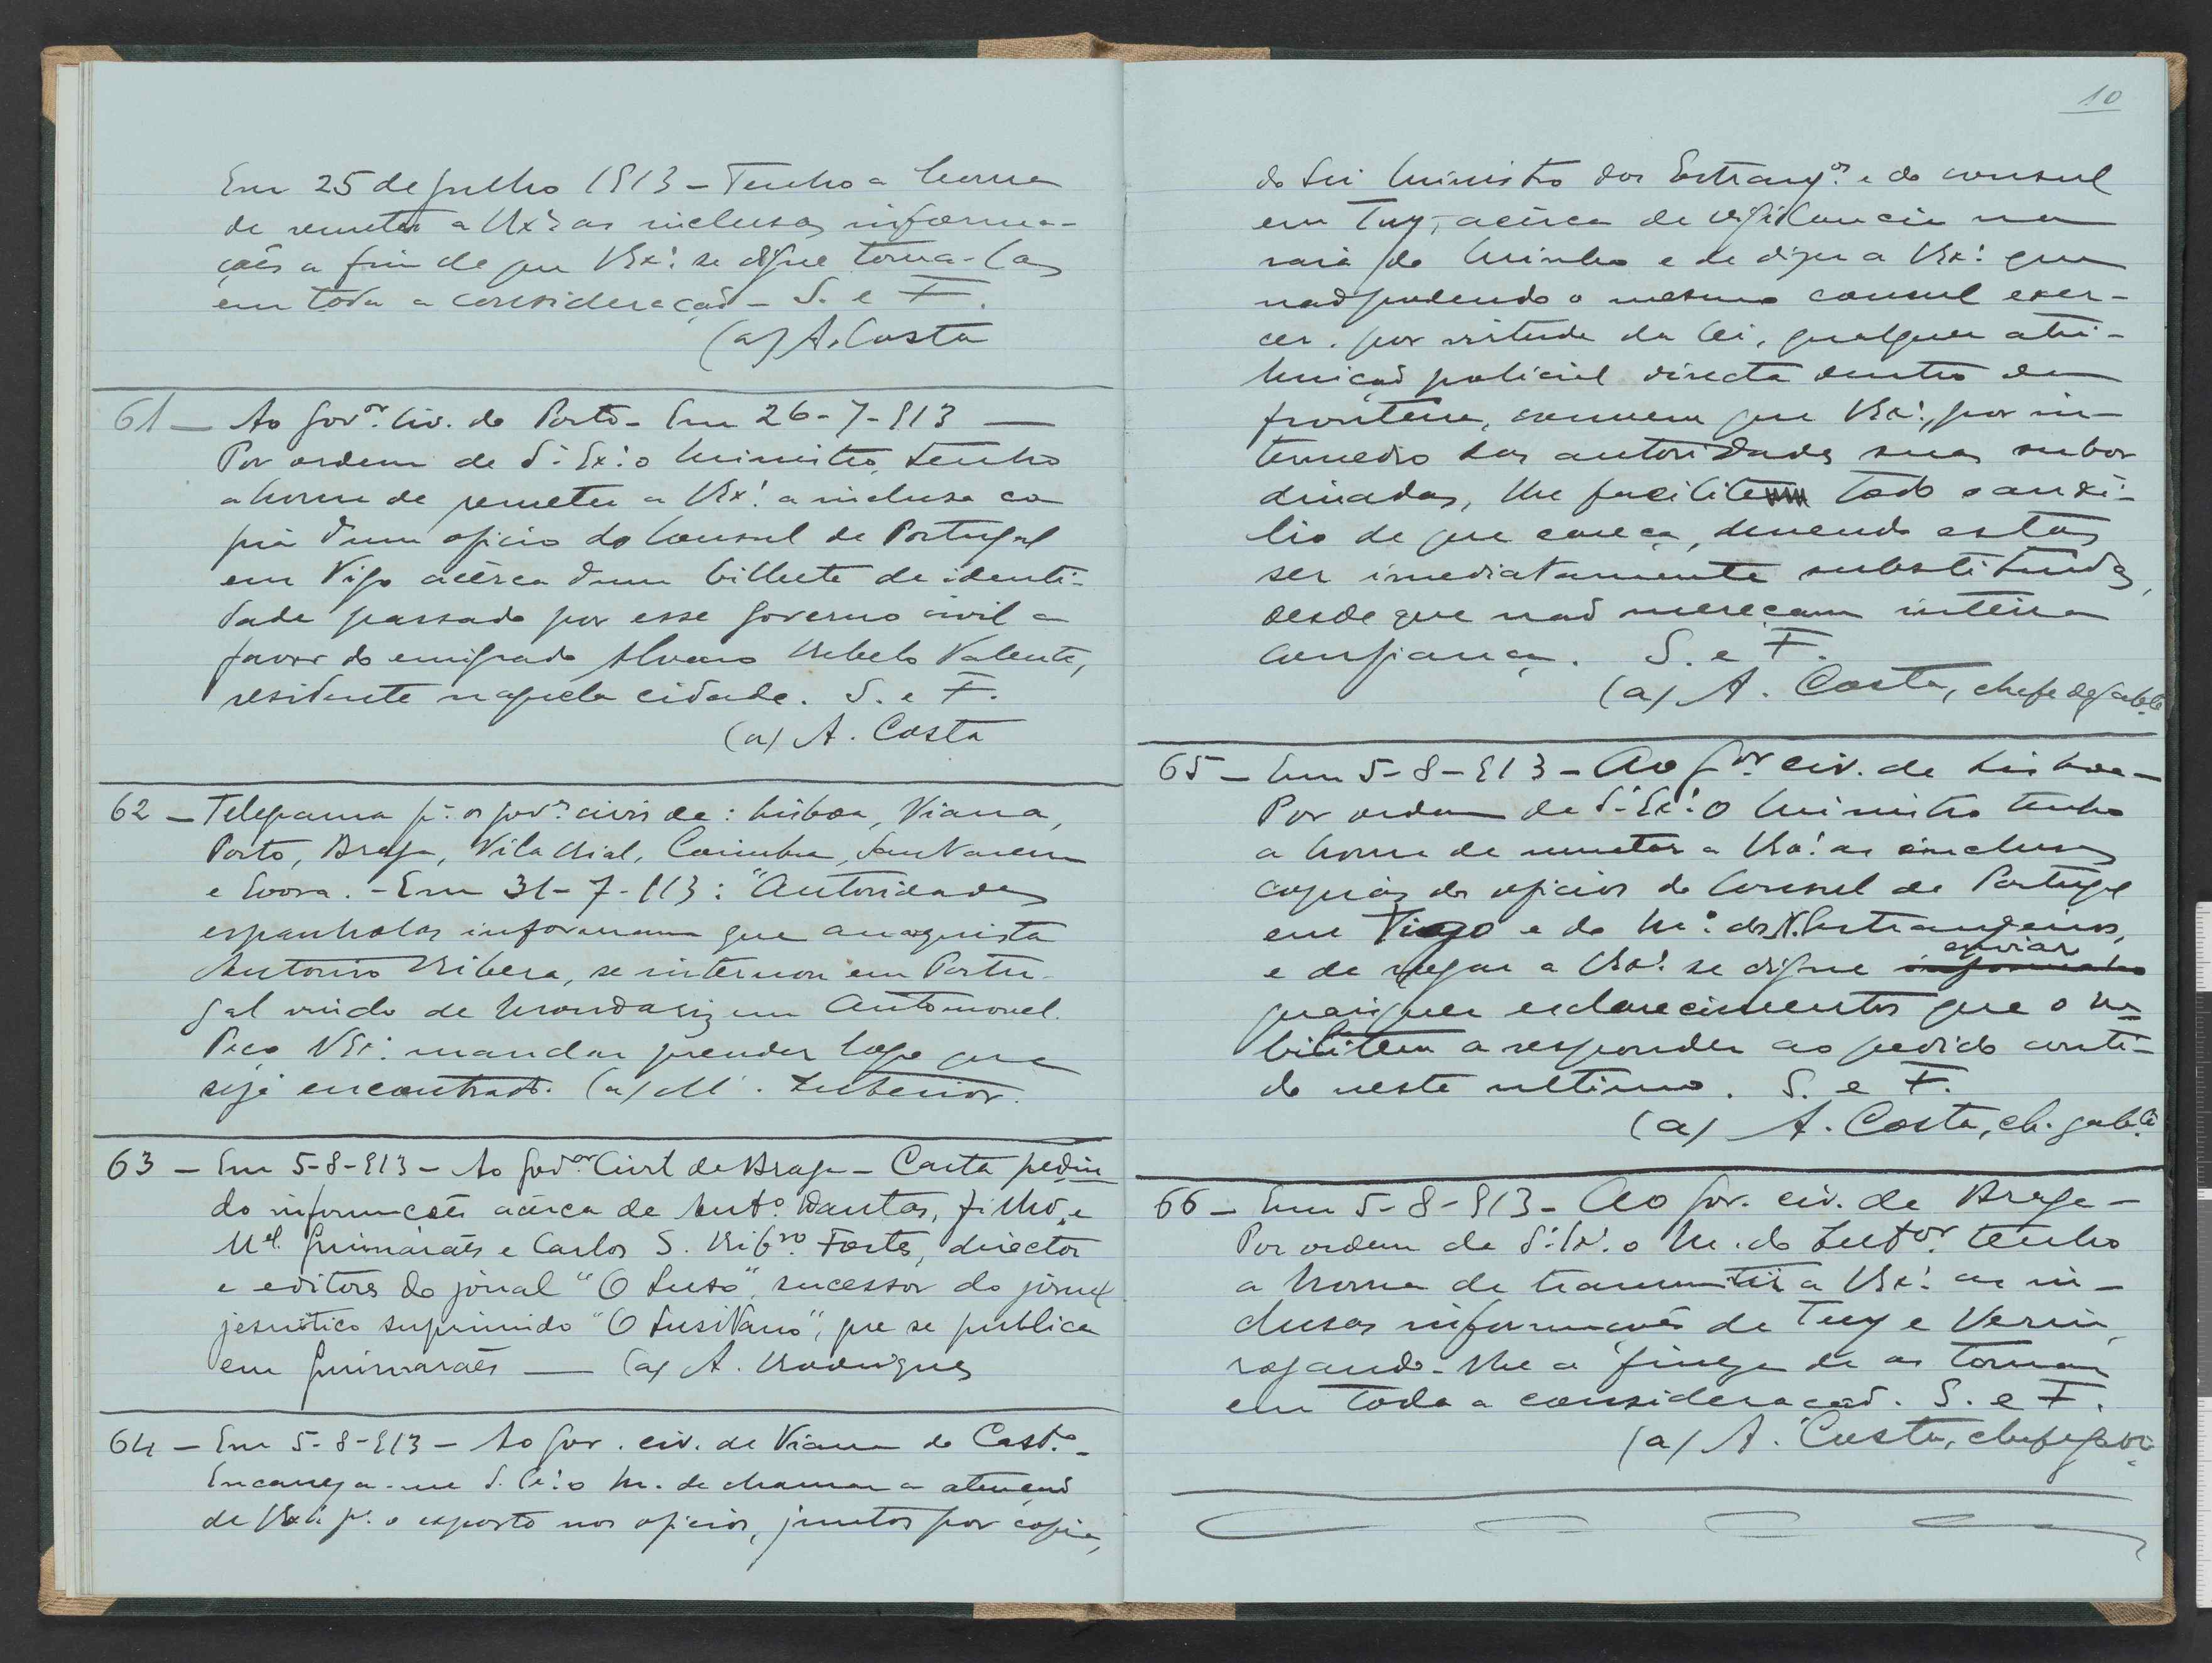 Em 25 de Julho 1913 - Tenho a honra
de remeter a V.Ex.ª as inclusas informa-
ções a fim de que V.Ex.ª se digne toma-las
em toda a consideração - S. e F.
(a) A. Costa
61 - Ao Gov.or Civ. do Porto - Em 26-7-913 -
Por ordem de S. Ex.ª o Ministro, tenho
a honra de remeter a V.Ex.ª a inclusa co
pia dum oficio do Consul de Portugal
em Vigo acêrca dum bilhete de identi-
dade passado por esse governo civil a
favor do emigrado Alvaro Rebelo Valente,
residente naquela cidade. S. e F.
(a) A. Costa
62 - Telegrama p.ª os gov.es civis de: Lisboa, Viana,
Porto, Braga, Vila Rial, Coimbra, Santarem
e Evora. - Em 31-7-913: "Autoridades
espanholas informam que anarquista
Antonio Ribera, se internou em Portu-
gal vindo de Mondariz em automovel.
Peço V.Ex.ª mandar prender logo que
seja encontrado. (a) M. Interior.
63 - Em 5-8-913 - Ao Gov.or Civil de Braga - Carta pedin
do informações acêrca de Ant.º Dantas, filho, e
M.el Guimarães e Carlos S. Rib.ro Fortes, director
e editores do jornal "O Luso", sucessor do jornal
jesuitico suprimido "O Lusitano", que se publica
em Guimarães - (a) A. Rodrigues
64 - Em 5-8-913 - Ao gov. civ. de Viana do Cast.º -
Encarrega-me S. Ex.ª o M. de chamar a atenção
de V.Ex.ª p.ª o exposto nos oficios, juntos por copia,
10
do Sr. Ministro dos Estrang.os e do consul
em Tuy, acêrca de vigilancia na
raia do Minho e de dizer a V.Ex.ª que
não podendo o mesmo consul exer-
cer, por virtude da lei, qualquer atri-
buição policial directa dentro da
fronteira, convem que V.Ex.ª, por in-
termedio das autoridades suas subor
dinadas, lhe facilite todo o auxi-
lio de que careça, devendo estas
ser imediatamente substituidas,
desde que não mereçam inteira
confiança. S. e F.
(a) A. Costa, chefe de gab.te
65 - Em 5-8-913 - Ao G.or civ. de Lisboa -
Por ordem de S. Ex.ª o Ministro tenho
a honra de remeter a V.Ex.ª as inclusas
copias de oficios do Consul de Portugal
em Vigo e do M.º dos N. Estrangeiros,
e de rogar a V.Ex.ª se digne enviar
quaisquer esclarecimentos que o ha
bilitem a responder ao pedido conti-
do neste ultimo. S. e F.
(a) A. Costa, ch. gab.te
66 - Em 5-8-913 - Ao Gov. civ. de Braga -
Por ordem de S. Ex.ª o M. do Int.or tenho
a honra de transmitir a V.Ex.ª as in-
clusas informações de Tuy e Verin,
rogando-lhe a fineza de as tomar
em toda a consideração. S. e F.
(a) A. Costa, chefe gab.te